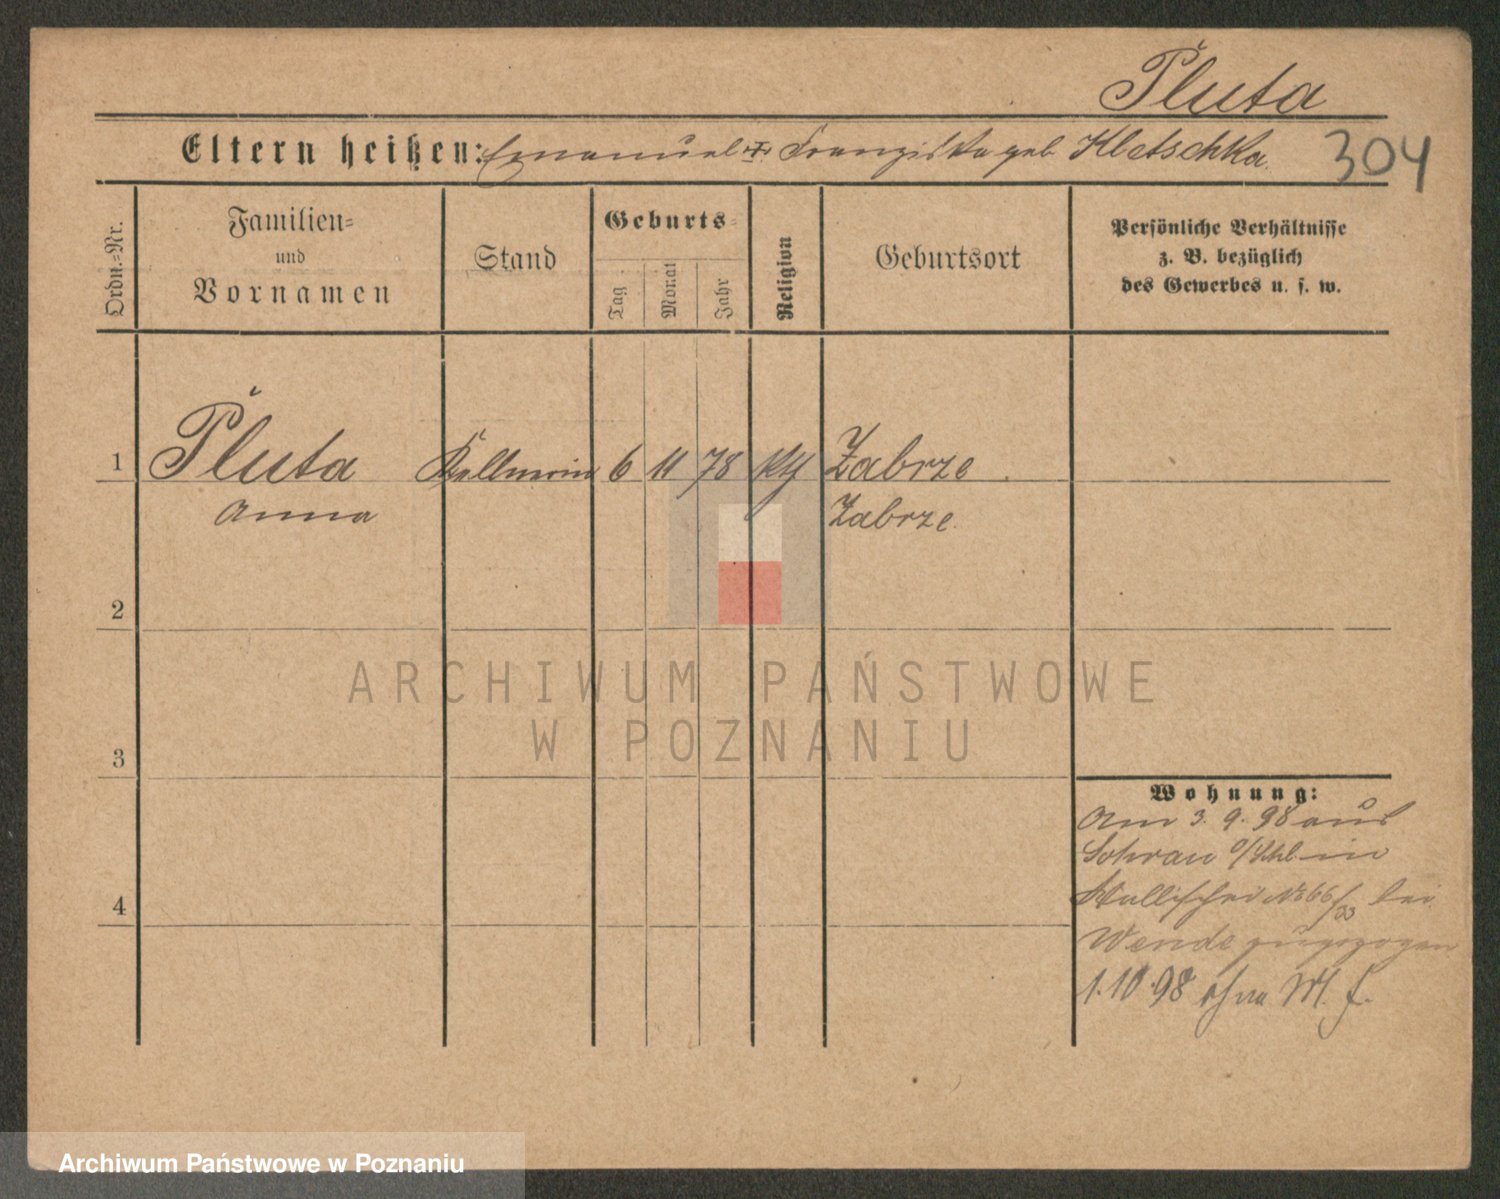 Pluta
Eltern heißen: Emanuel Franziska geb Kletschka.
304
Ordn.-Nr.
Familien-
und
Vornamen
Stand
Geburts-
Tag
Monat
Jahr
Religion
Geburtsort
Persönliche Verhältnisse
z. B. bezüglich
des Gewerbes u. s. w.
1 Pluta Kellnerin 6 11 78 kth Zabrze
Anna Zabrze.
2
ARCHIWUM PAŃSTWOWE
W POZNANIU
3
Wohnung:
Am 3. 9. 98 aus
Sohrau o/Schl in
4
Wallischei No 66/ bei
Wende zugezogen
1.10.98 ohne
Archiwum Państwowe w Poznaniu